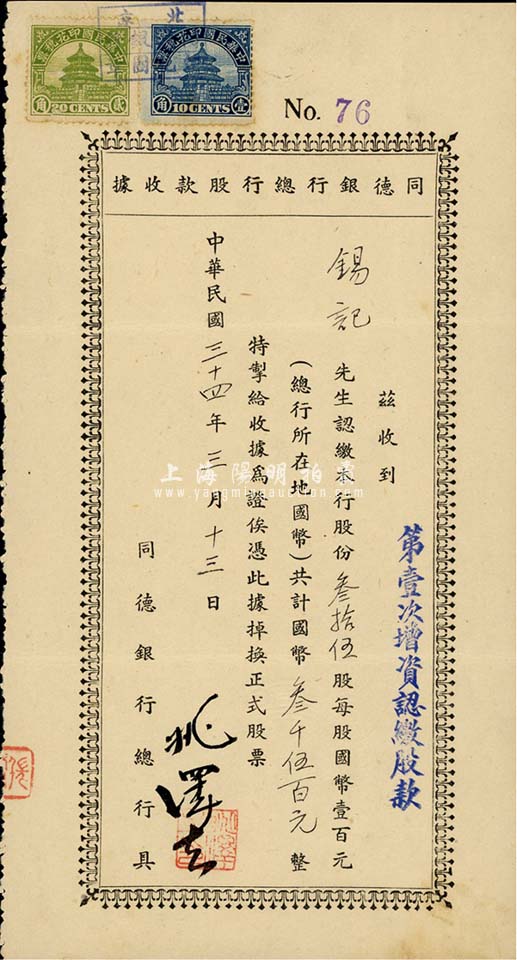 中華民國印花稅票
貳角
20 CENTS
中華民國印花稅票
壹角
10 CENTS
No. 76
同德銀行總行股款收據
第壹次增資認繳股款
茲收到
錫記先生認繳本行股份叁拾伍股每股國幣壹百元
(總行所在地國幣)共計國幣叁千伍百元整
特掣給收據爲證俟憑此據掉換正式股票
中華民國三十四年三月十三日
同德銀行總行具
上海陽明拍賣
www.yangmingauction.com